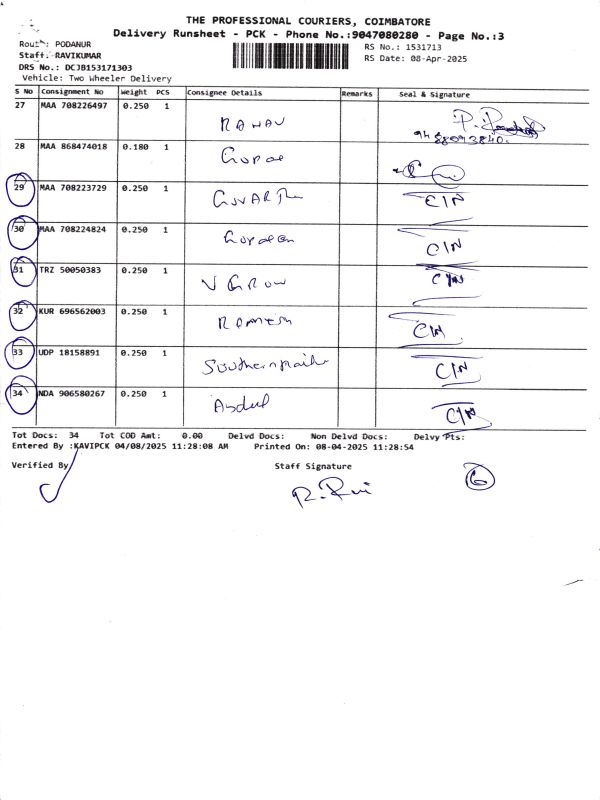 THE PROFESSIONAL COURIERS, COIMBATORE
Delivery Runsheet - PCK - Phone No.:9047080280 - Page No.:3
Route: PODANUR RS No.: 1531713
Staff: RAVIKUMAR RS Date: 08-Apr-2025
DRS No.: DCJB153171303
Vehicle: Two Wheeler Delivery
S No Consignment No Weight PCS Consignee Details Remarks Seal & Signature
27 MAA 708226497 0.250 1
28 MAA 868474018 0.180 1 Gopal
29 MAA 708223729 0.250 1 C/N
30 MAA 708224824 0.250 1 C/N
31 TRZ 50050383 0.250 1 V Grow C/N
32 KUR 696562003 0.250 1 Ramesh C/N
33 UDP 18158891 0.250 1 C/N
34 NDA 906580267 0.250 1 Abdul C/N
Tot Docs: 34 Tot COD Amt: 0.00 Delvd Docs: Non Delvd Docs: Delvy Pts:
Entered By :KAVIPCK 04/08/2025 11:28:08 AM Printed On: 08-04-2025 11:28:54
Verified By Staff Signature
R. Ravi 6